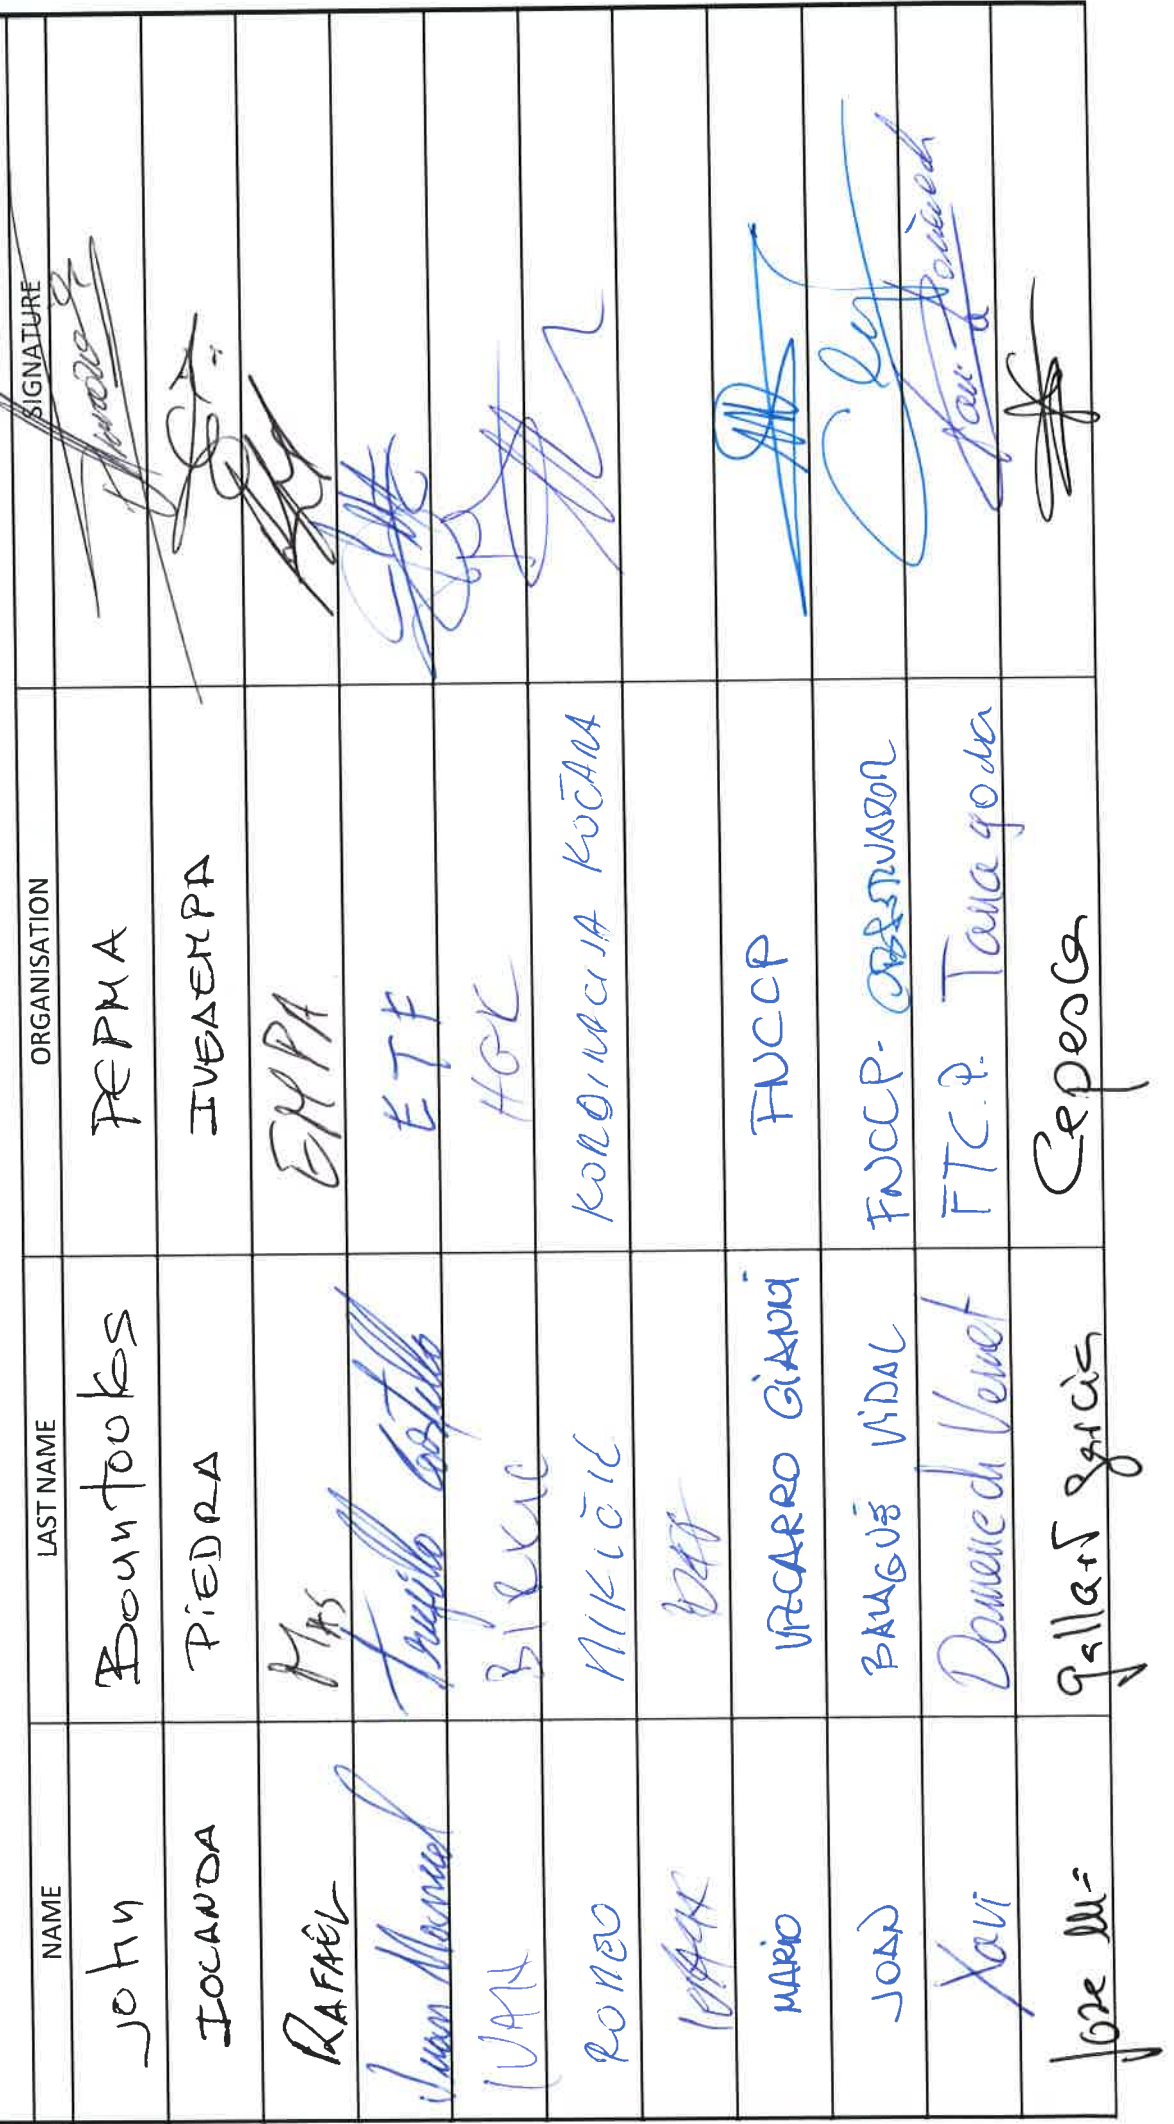 NAME LAST NAME ORGANISATION SIGNATURE
John Bountoukos PEPMA
IOLANDA PIEDRA IVEAEMPA
RAFAËL MAS EMPA
Juan Manuel Trujillo Castillo ETF
IVAN BIRKIC HGK
ROMEO NIKIČIĆ KORDINACIJA KOČARA
MARIO VIZCARRO GIANNI FNCCP
JOAN BALAGUÉ VIDAL FNCCP-OBSERVADOR
Xavi Domenech Vernet FTC.P. Tarragona
Jose Mª Gallart Garcia Cepesca